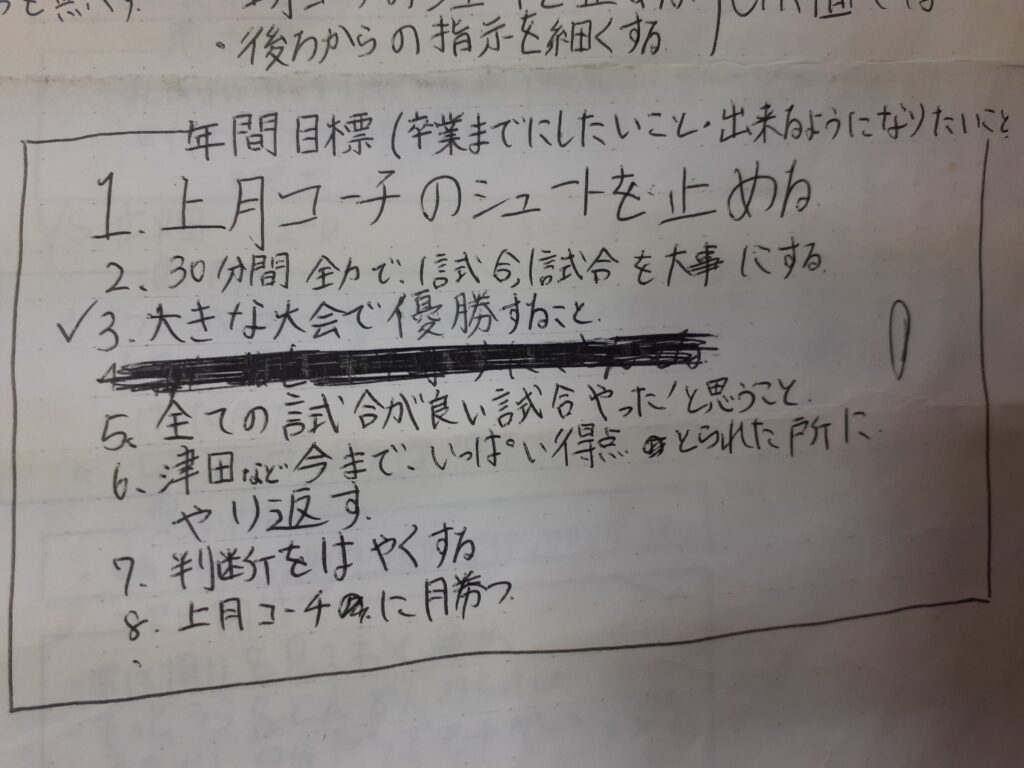 ・後ろからの指示を細くする
年間目標(卒業までにしたいこと・出来るようになりたいこと
1. 上月コーチのシュートを止める
2、30分間 全力で、1試合,1試合を大事にする
✓3、大きな大会で優勝すること
5、全ての試合が良い試合やった!と思うこと
6、津田など今まで、いっぱい得点 とられた所に
やり返す
7、判断をはやくする
8、上月コーチ に勝つ